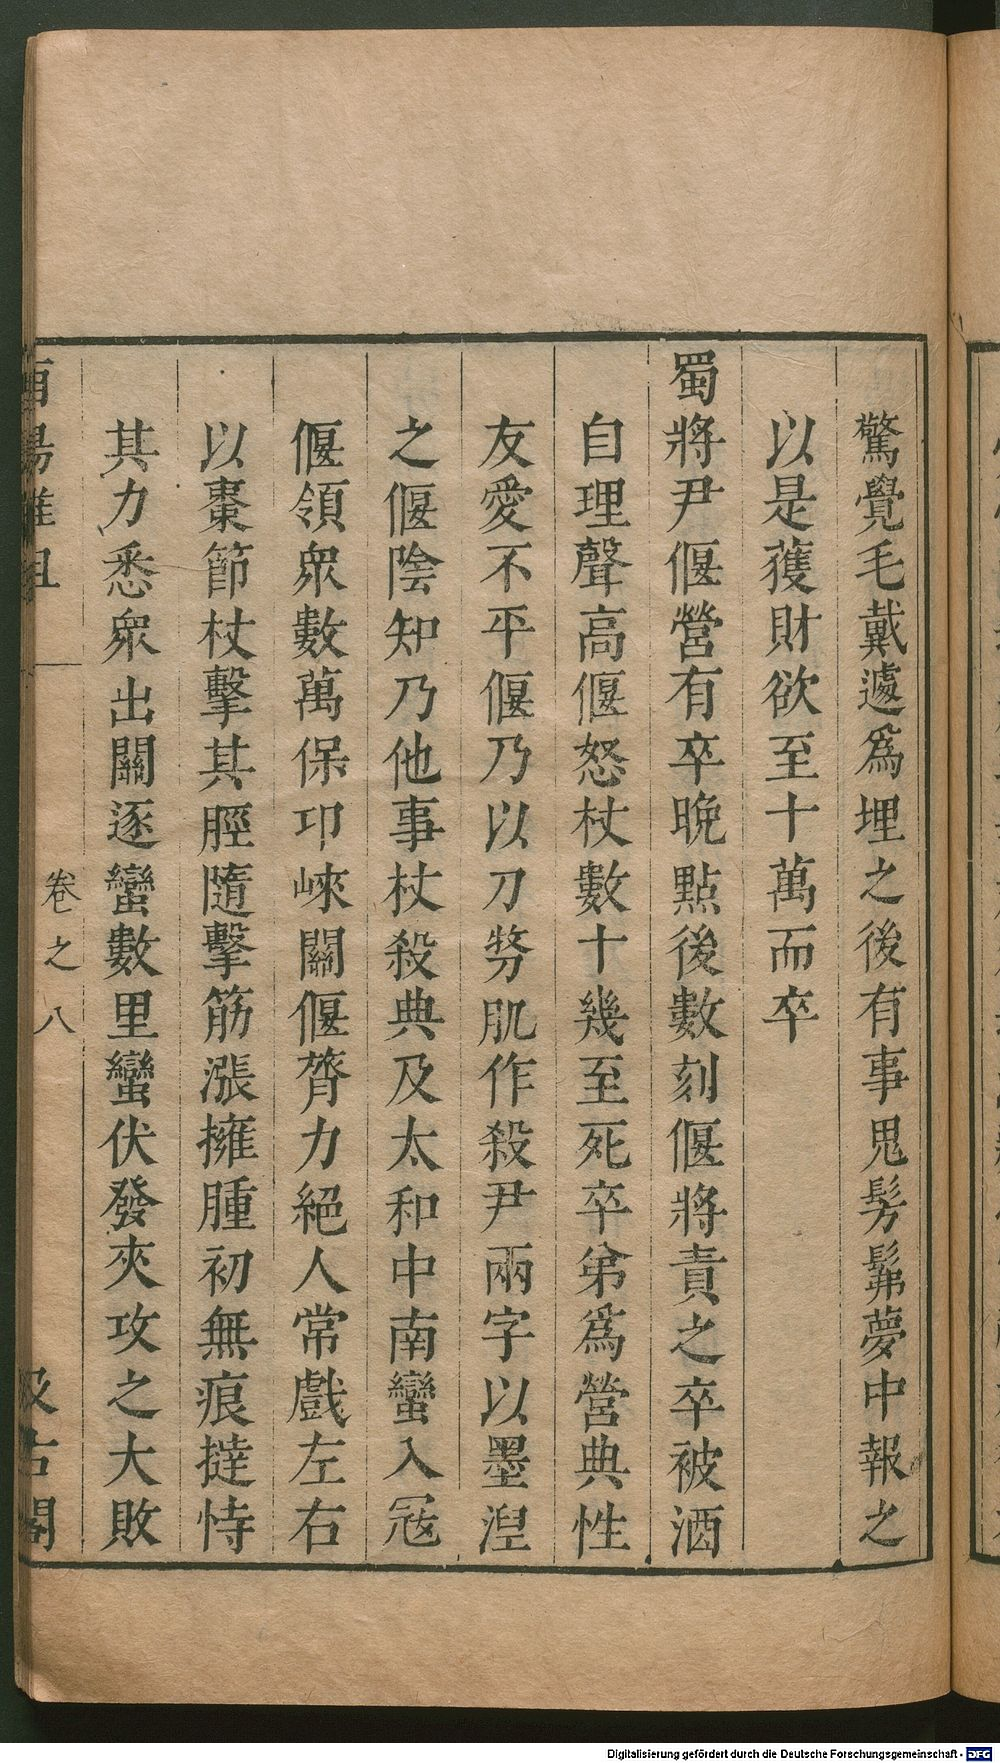 驚覺毛戴遽爲埋之後有事鬼髣髴夢中報之
以是獲財欲至十萬而卒
蜀將尹偃營有卒晚點後數刻偃將責之卒被酒
自理聲高偃怒杖數十幾至死卒弟爲營典性
友愛不平偃乃以刀剺肌作殺尹兩字以墨湼
之偃陰知乃他事杖殺典及太和中南蠻入冦
偃領衆數萬保卭崍關偃膂力絕人常戲左右
以棗節杖擊其脛隨擊筋漲擁腫初無痕撻恃
其力悉衆出關逐蠻數里蠻伏發夾攻之大敗
酉陽雜俎 卷之八 汲古閣
Digitalisierung gefördert durch die Deutsche Forschungsgemeinschaft - DFG